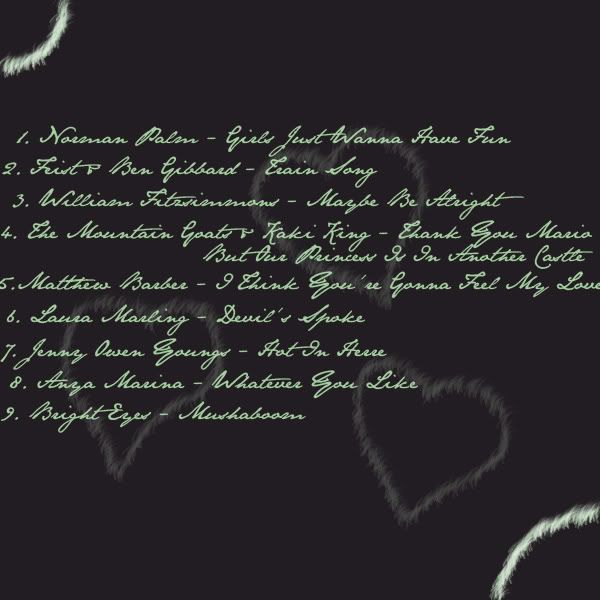 1. Norman Palm - Girls Just Wanna Have Fun
2. Feist & Ben Gibbard - Train Song
3. William Fitzsimmons - Maybe Be Alright
4. The Mountain Goats & Kaki King - Thank You Mario
But Our Princess Is In Another Castle
5. Matthew Barber - I Think You're Gonna Feel My Love
6. Laura Marling - Devil's Spoke
7. Jenny Owen Youngs - Hot In Herre
8. Anya Marina - Whatever You Like
9. Bright Eyes - Mushaboom